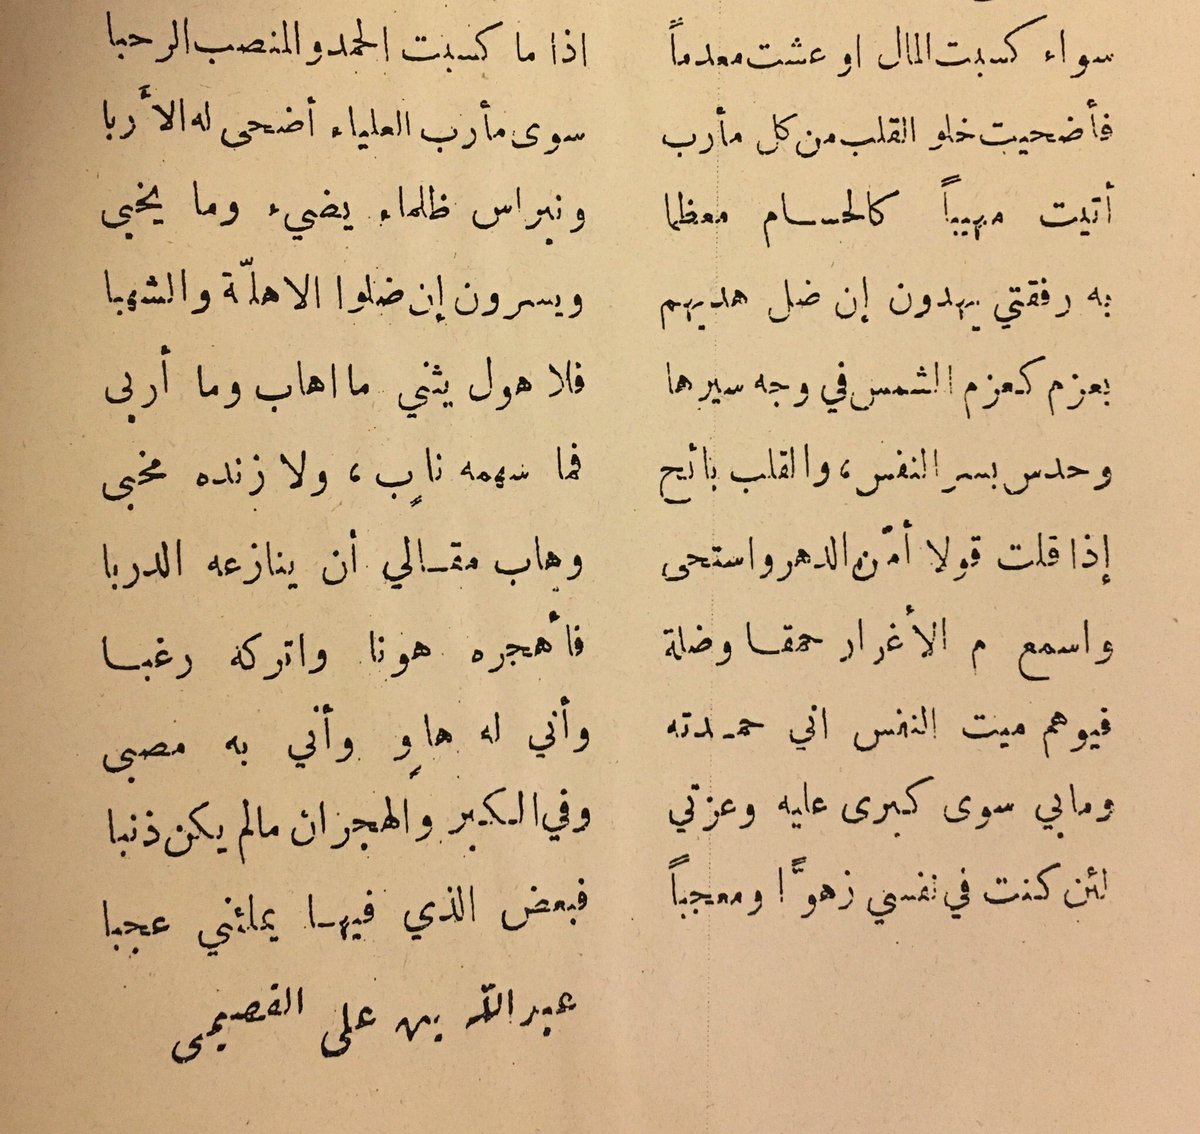 سواء كسبت المال او عشت معدماً اذا ما كسبت الحمد والمنصب الرحبا
فأضحيت خلو القلب من كل مأرب سوى مأرب العلياء أضحى له الأربا
أتيت مهيباً كالحسام معظما ونبراس ظلماء يضيء وما يخبى
به رفقتي يهدون إن ضل هديهم ويسرون إن ضلوا الاهلّة والشهبا
بعزم كعزم الشمس في وجه سيرها فلا هول يثني ما اهاب وما أربى
وحدس بسر النفس، والقلب بائح فما سهمه نابٍ، ولا زنده مخبى
إذا قلت قولا أمّن الدهر واستحى وهاب مقالي أن ينازعه الدربا
واسمع م الأغرار حمقا وضلة فأهجره هونا واتركه رغبا
فيوهم ميت النفس اني حمدته وأني له هاوٍ وأني به مصبى
ومابي سوى كبرى عليه وعزتي وفي الكبر والهجران مالم يكن ذنبا
لئن كنت في نفسي زهوًّا ومعجباً فبعض الذي فيها يملئني عجبا
عبد الله بن علي القصيمي